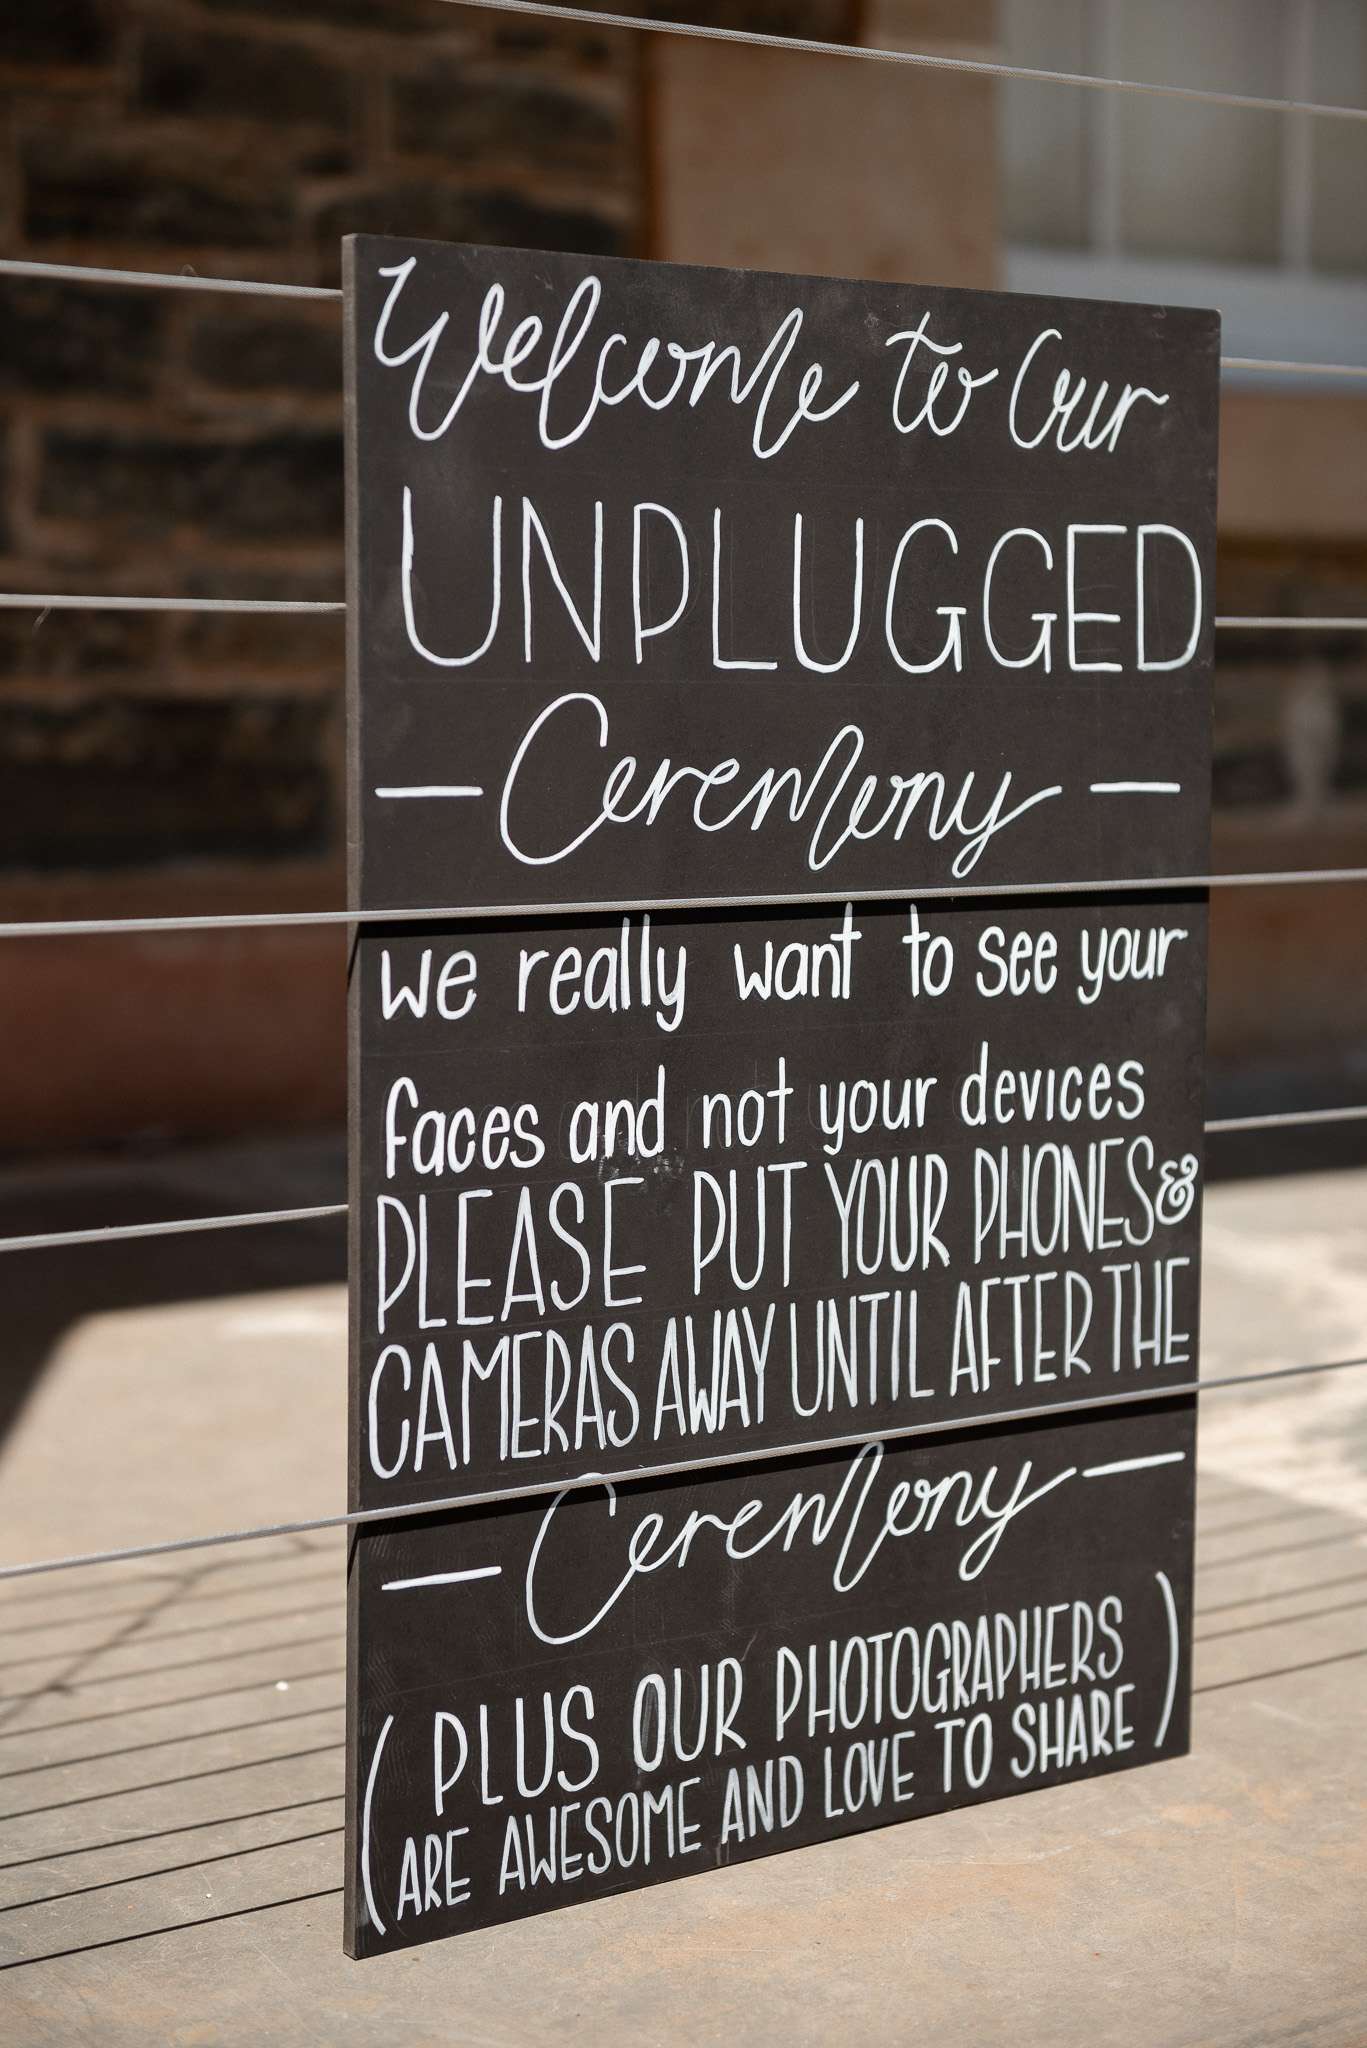 Welcome to Our
UNPLUGGED
— Ceremony —
we really want to see your
faces and not your devices
PLEASE PUT YOUR PHONES &
CAMERAS AWAY UNTIL AFTER THE
— Ceremony —
( PLUS OUR PHOTOGRAPHERS
ARE AWESOME AND LOVE TO SHARE )